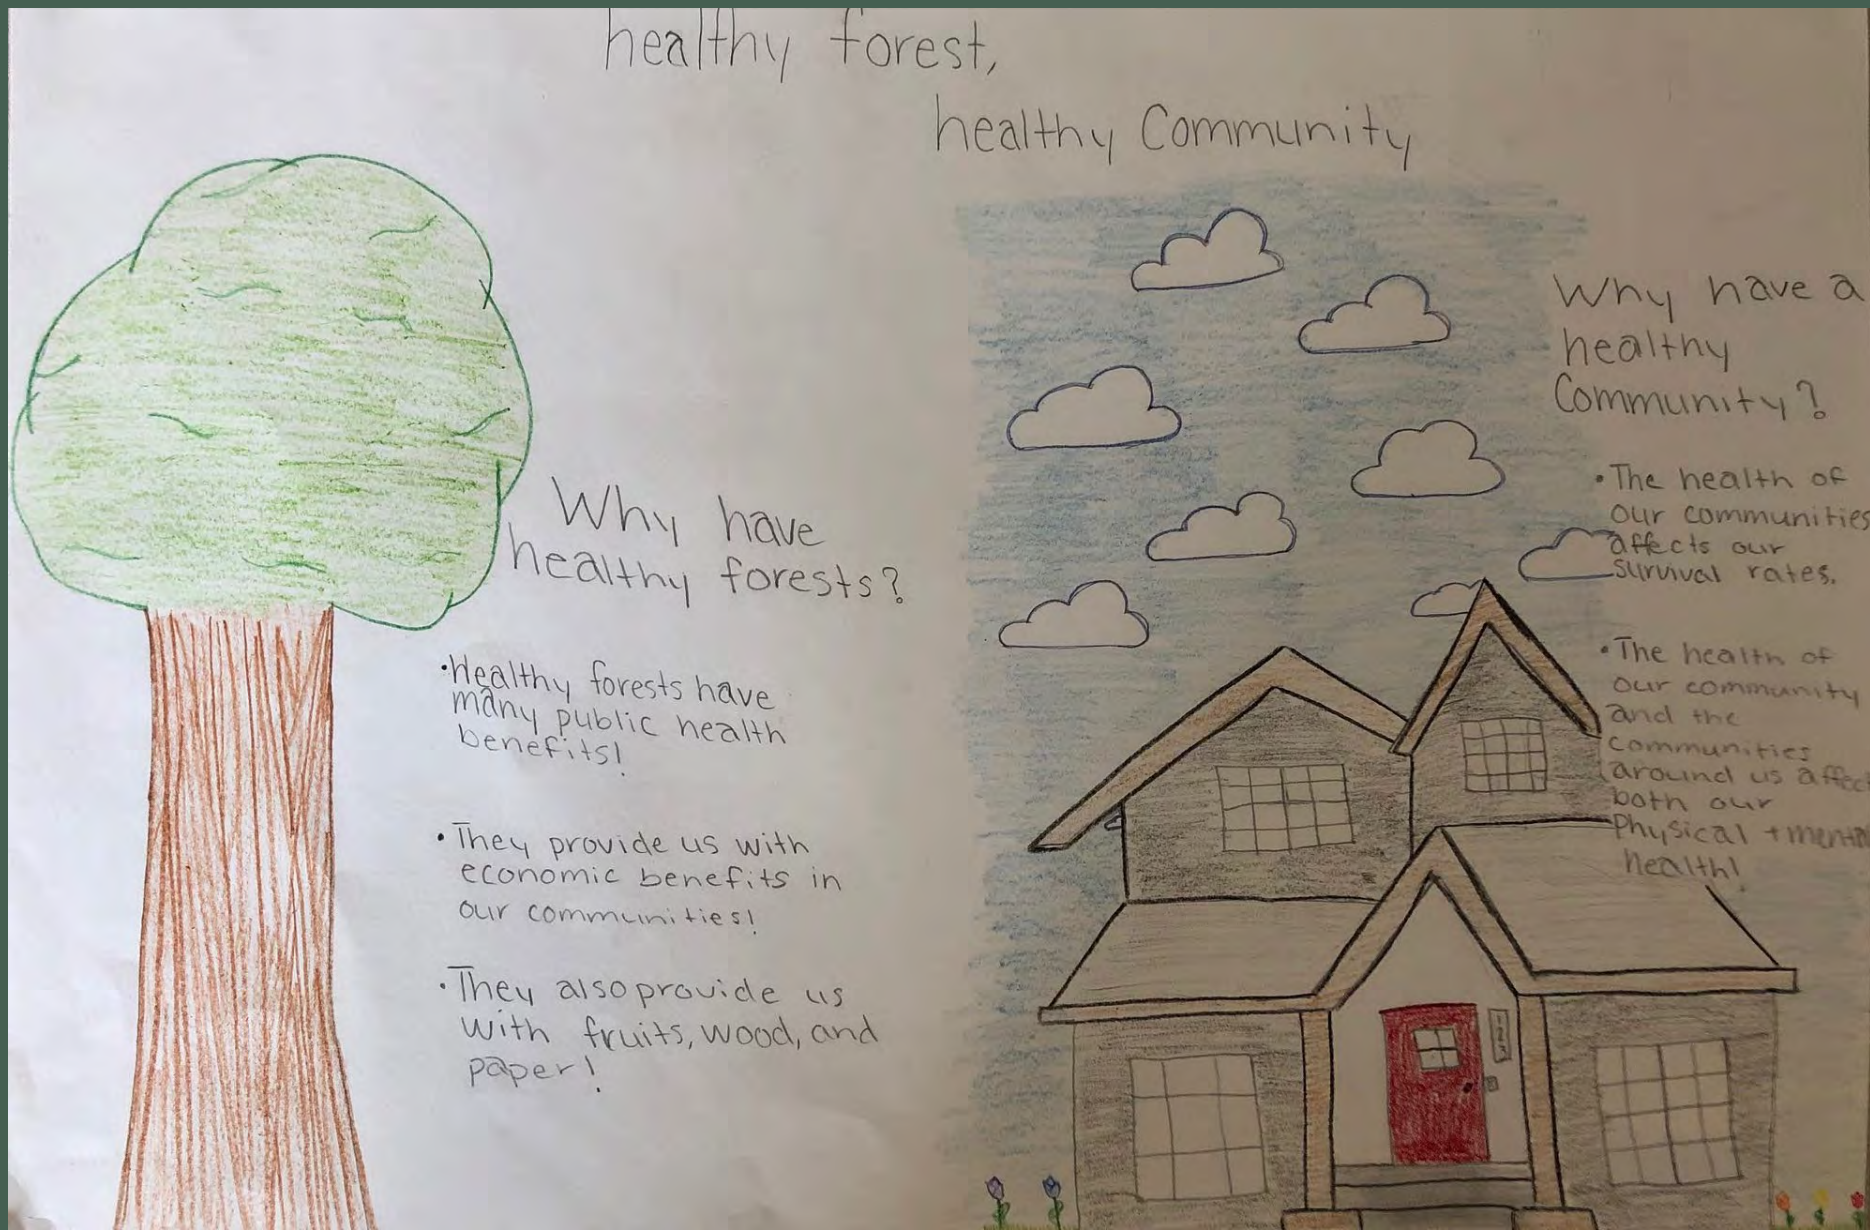 healthy forest,
healthy Community
Why have
healthy forests?
•Healthy forests have
many public health
benefits!
•They provide us with
economic benefits in
our communities!
•They also provide us
with fruits, wood, and
paper!
Why have a
healthy
Community?
•The health of
our communities
affects our
survival rates.
•The health of
our community
and the
communities
around us affect
both our
Physical + mental
health!
123